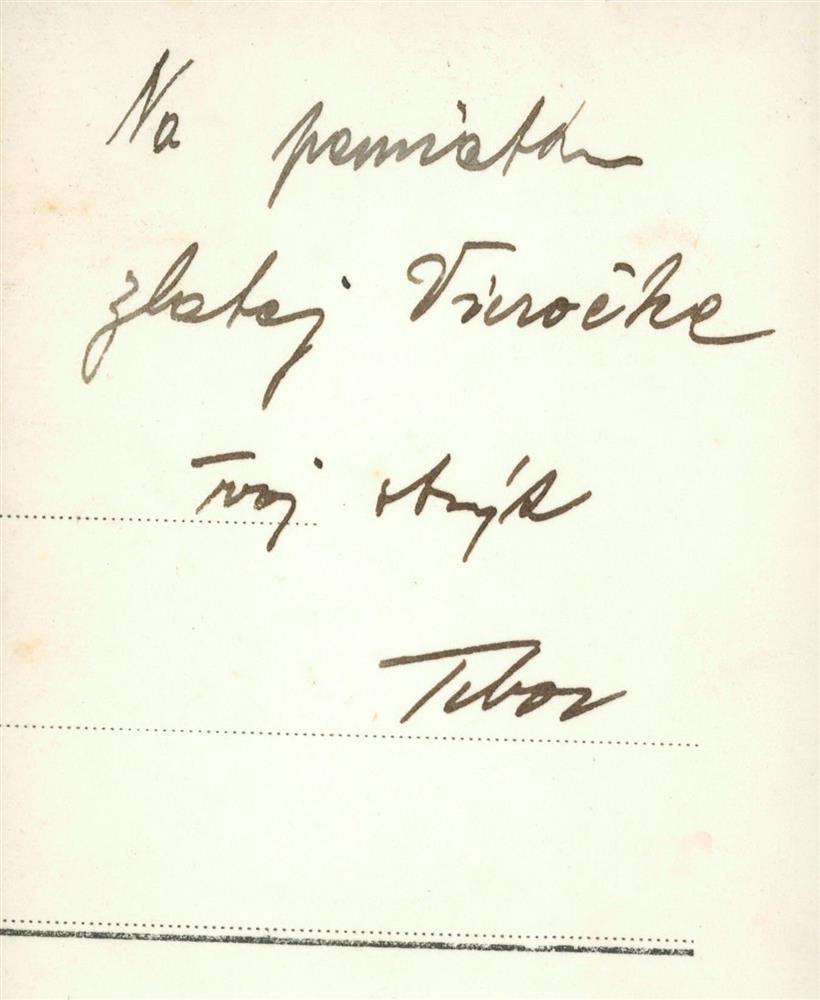 Na pamiatku
zlatej Vieročke
Tvoj strýk
Tibor